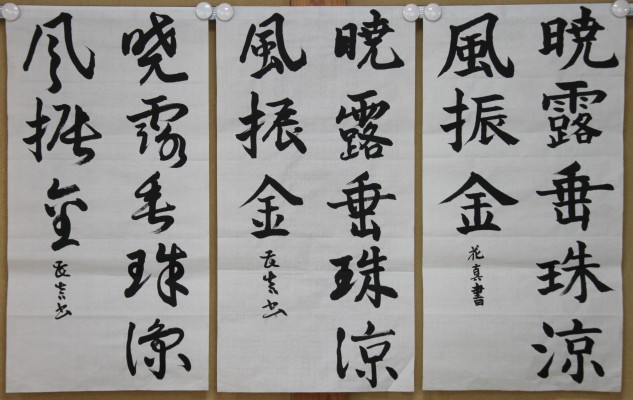 暁露垂珠涼
風振金
花真書
暁露垂珠涼
風振金
暁露垂珠涼
風振金